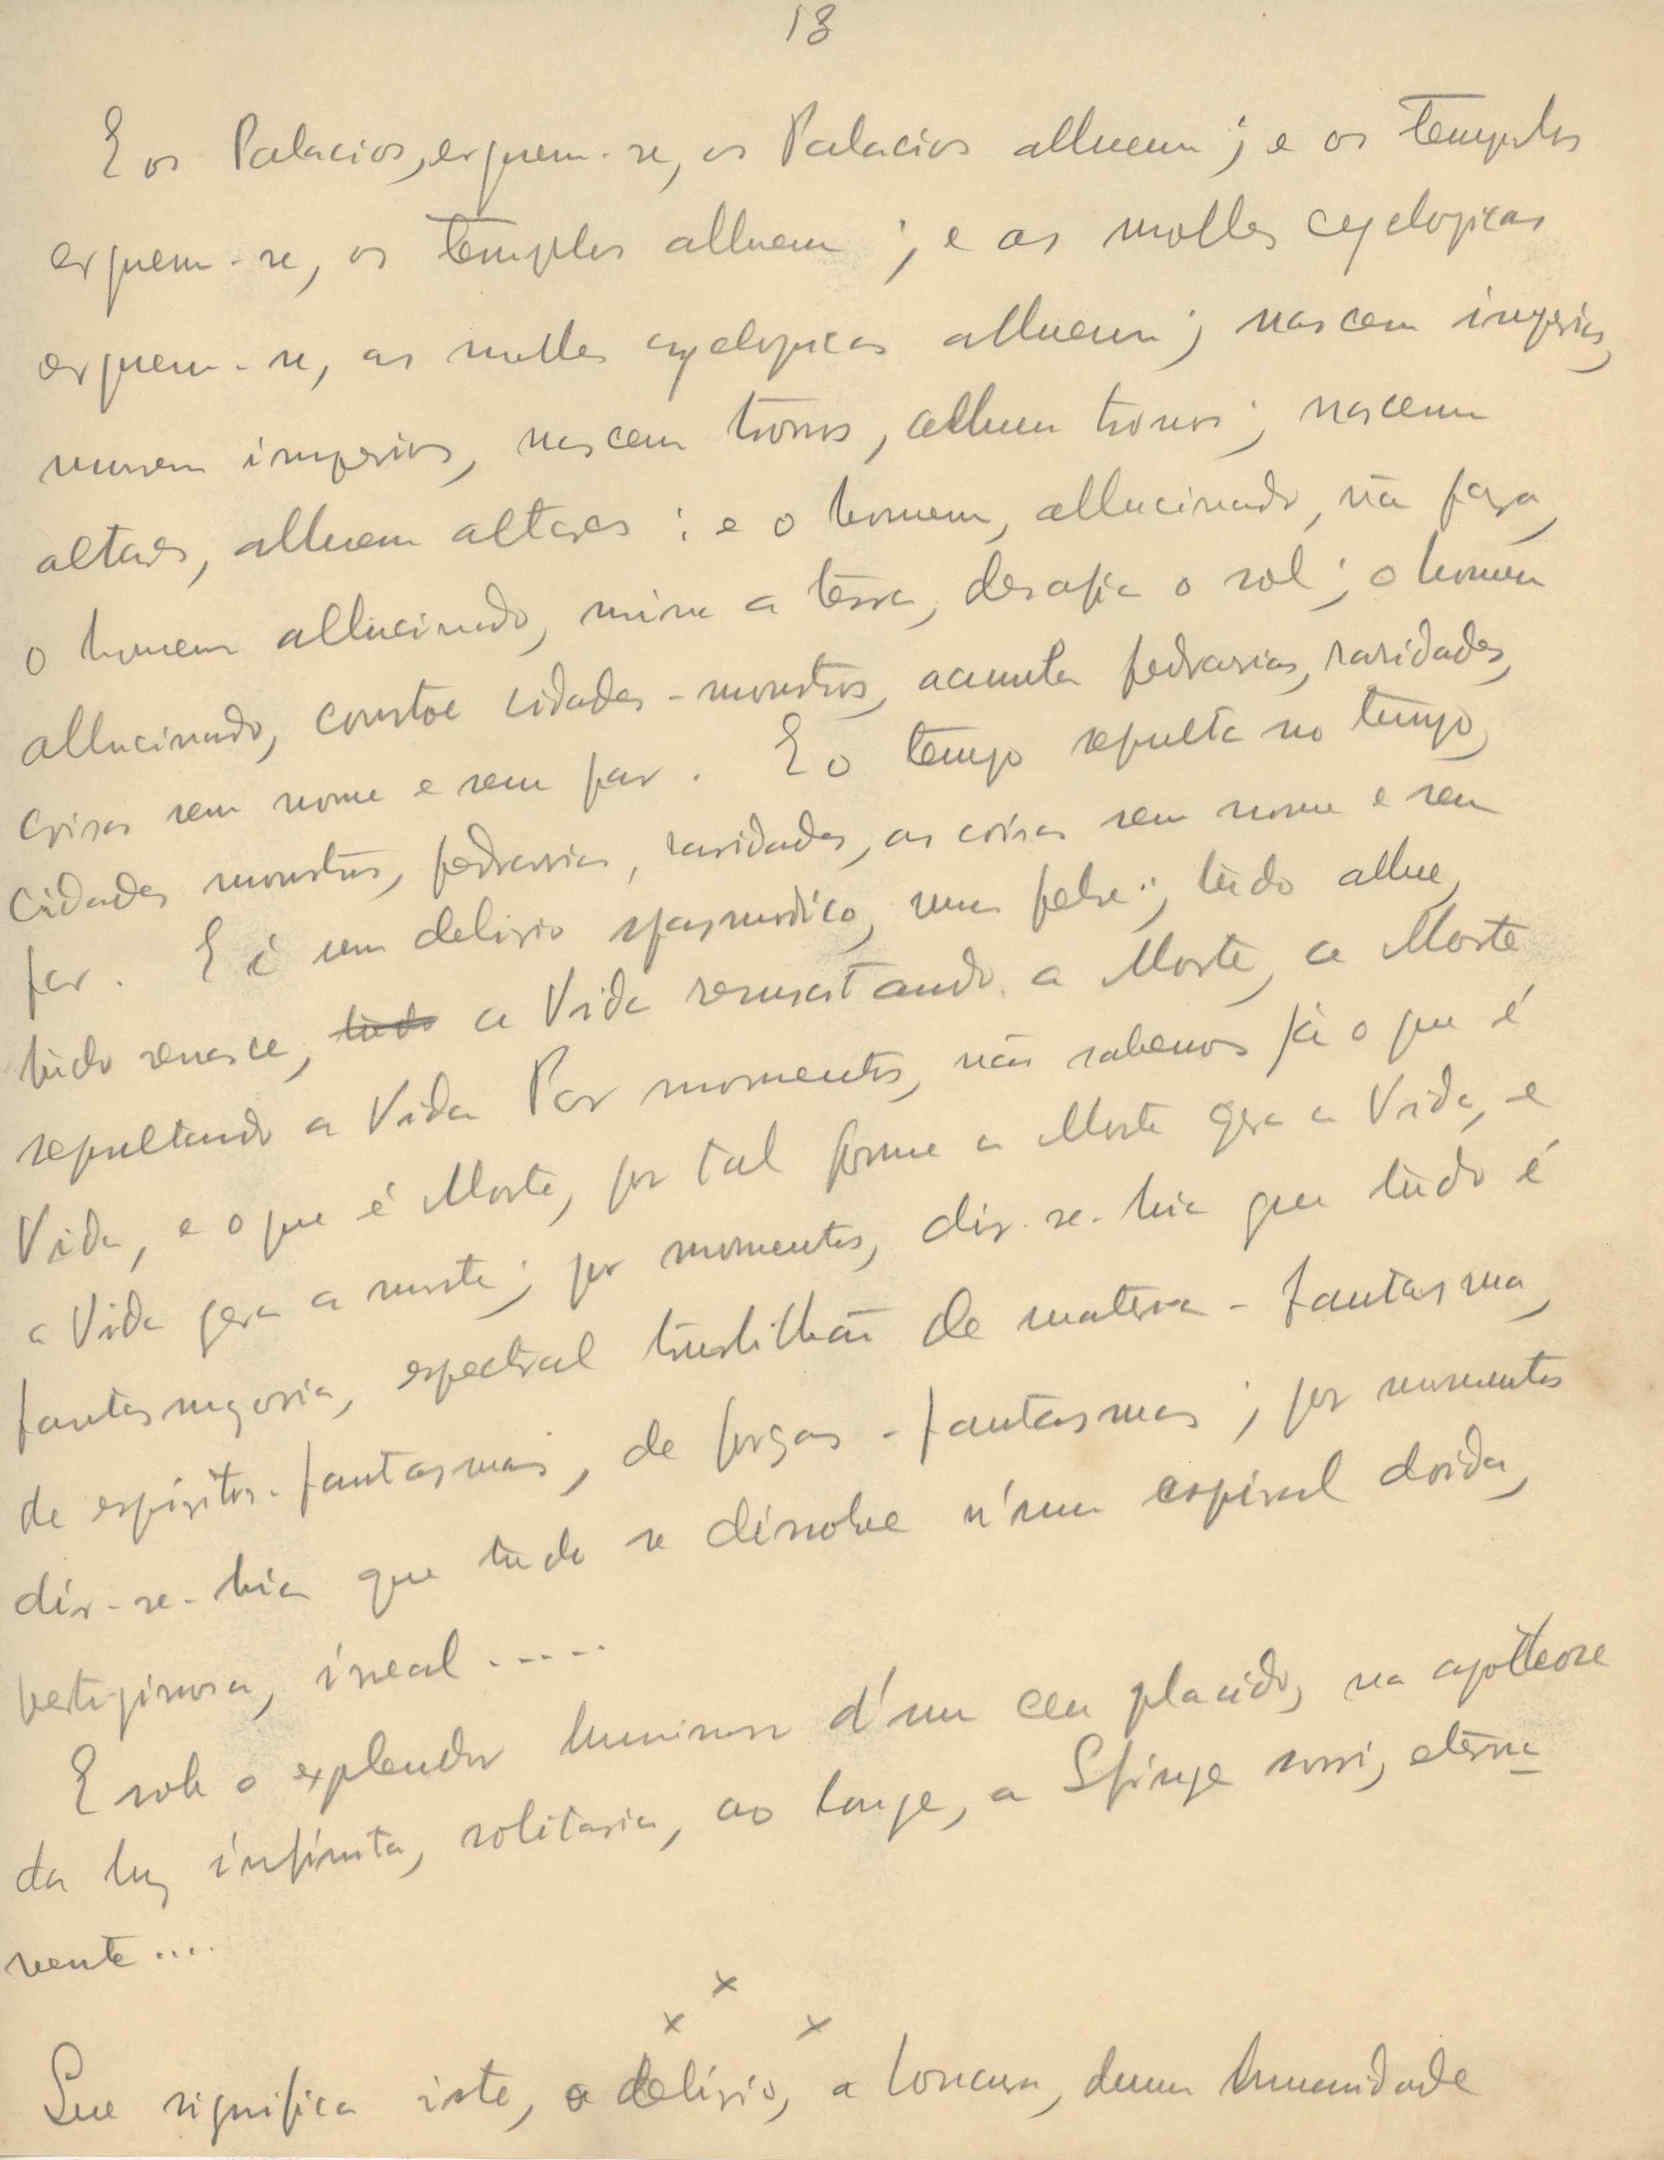 18
E os Palacios, erguem-se, os Palacios alluem; e os Templos
erguem-se, os Templos alluem; e as molles cyclopicas
erguem-se, as molles cyclopicas alluem; nascem imperios,
morrem imperios, nascem tronos, alluem tronos; nascem
altares, alluem altares: e o homem, allucinado, não para,
o homem allucinado, mina a terra, desafia o sol; o homem
allucinado, constroe cidades-monstros, acumula pedrarias, raridades,
coisas sem nome e sem par. E o tempo sepulta no tempo,
cidades monstros, pedrarias, raridades, as coisas sem nome e sem
par. E é um delirio espasmodico, uma febre; túdo allue,
túdo renasce, túdo a Vida resuscitando a Morte, a Morte
sepultando a Vida Por momentos, não sabemos já o que é
Vida, e o que é Morte, por tal forma a Morte gera a Vida, e
a Vida gera a morte; por momentos, dir-se-hia que túdo é
fantasmagoria, espectral turbilhão de materia-fantasma,
de espiritos-fantasmas, de forças-fantasmas; por momentos
dir-se-hia que tudo se dissolve n'uma espiral doida,
vertiginosa, irreal.....
E sob o explendor luminoso d'um ceu placido, na apótheose
da luz infinita, solitaria, ao longe, a Sfinge sorri, eterna
mente....
x
x x
Que significa isto, o delirio, a loucura, duma humanidade